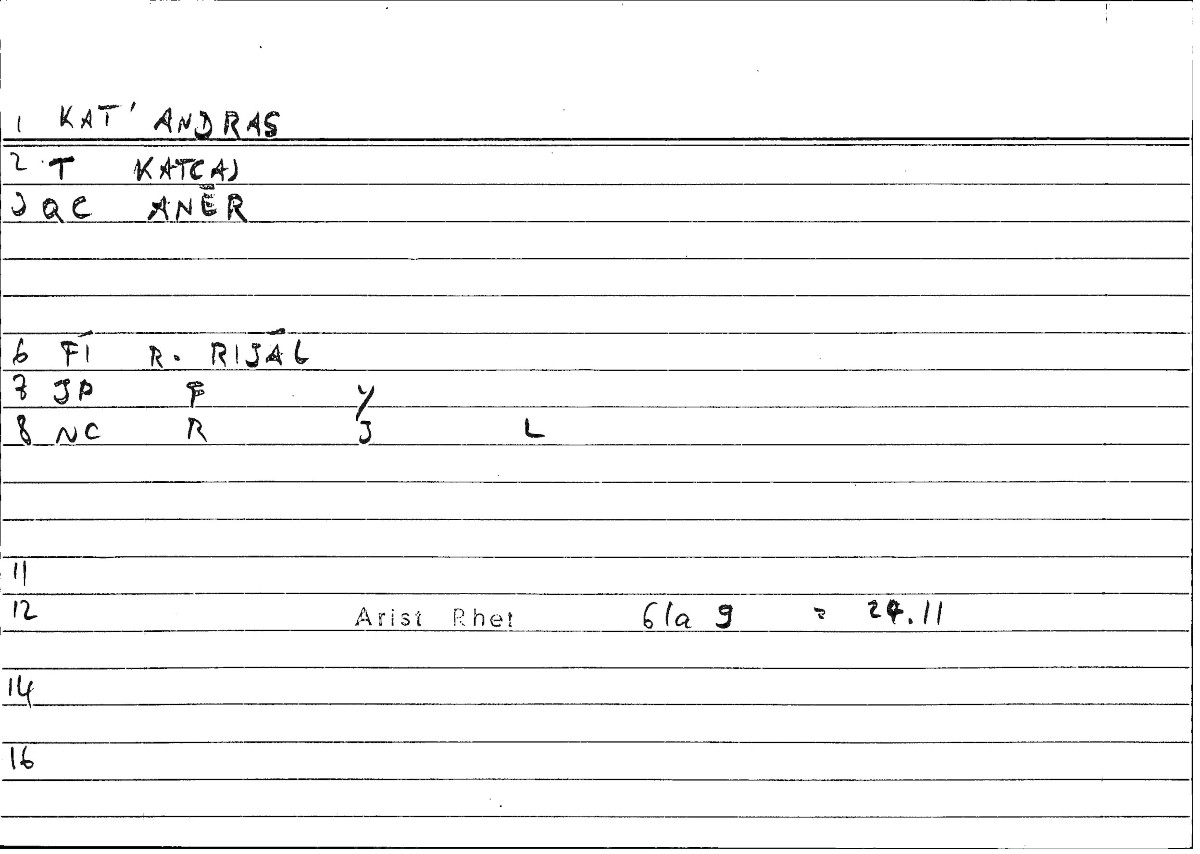 1 KAT' ANDRAS
2 T KATCAJ
3 QC ANĒR
6 FĪ R. RIJĀL
7 JP F Y
8 NC R J L
11
12 Arist Rhet 61a 9 = 24.11
14
16